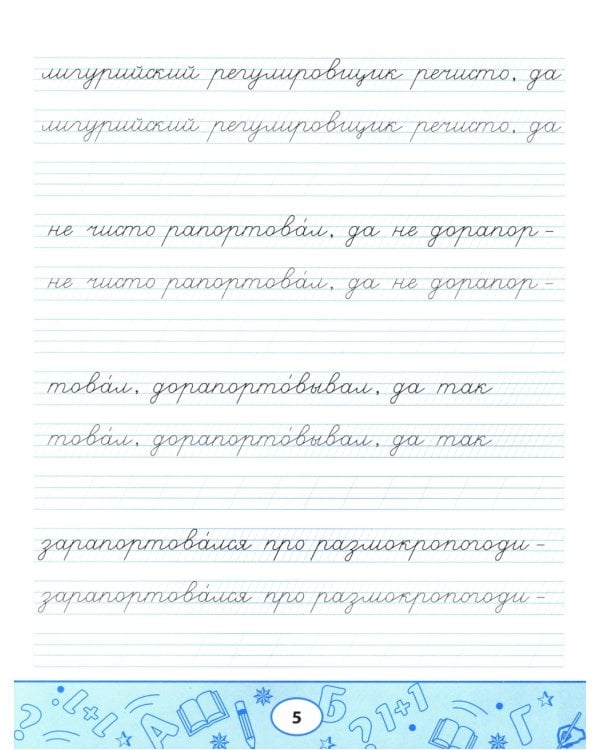 лигурийский регулировщик речисто, да
лигурийский регулировщик речисто, да
не чисто рапортова́л, да не дорапор-
не чисто рапортова́л, да не дорапор-
това́л, дорапорто́вывал, да так
това́л, дорапорто́вывал, да так
зарапортова́лся про размокропогоди-
зарапортова́лся про размокропогоди-
? 1+1 А 5 Б ? 1+1 Г